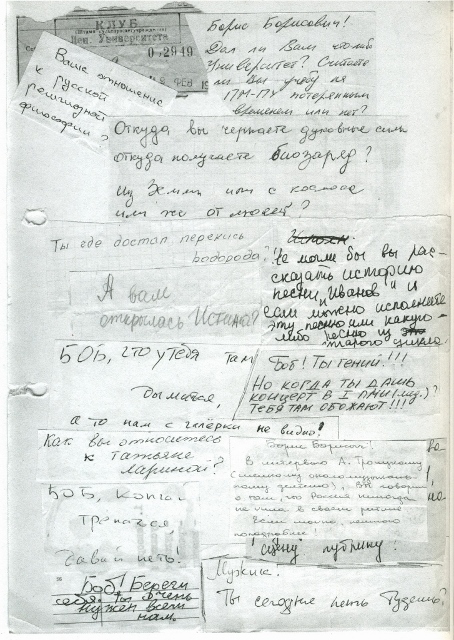 КЛУБ
Лен. Университета
02949
Ваше отношение
к русской
религиозной
философии?
Борис Борисович!
Дал ли Вам что-либо
Университет? Считаете
ли Вы учёбу на
ПМ-ПУ потерянным
временем или нет?
Откуда вы черпаете духовные силы
откуда получаете биозаряд?
Из Земли или с космоса
или же от людей?
Ты где достал перекись
водорода?
А вам
открылась Истина?
Не могли бы вы рас-
сказать историю
песни "Иванов" и
если можно исполните
эту песню или какую-
либо песню из
старого цикла.
БОБ, что у тебя там
дымится,
а то нам с галёрки не видно!
Боб! Ты гений!!!
Но когда ты дашь
концерт в I ЛМИ (мед.)?
Тебя там обожают!!!
Как вы относитесь
к Татьяне
Лариной?
Борис Борисыч!
В интервью А. Троицкому
Вы говори
о том, что Россия никогда
не жила в своём ритме
Если можно, немного
поподробнее!
БОБ, кончай
трепаться,
давай петь!
Боб! Береги
себя. Ты очень
нужен всем
нам.
Мужик.
Ты сегодня петь будешь?